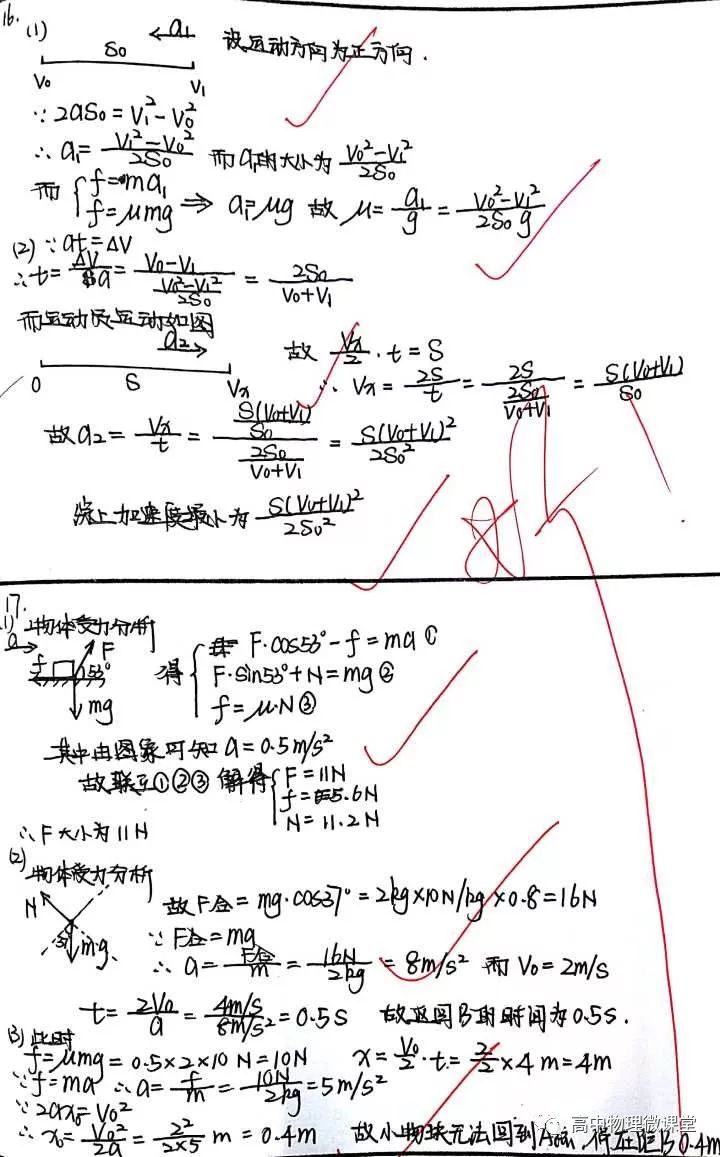 16.
(1) a₁
S₀ 设运动方向为正方向.
V₀ V₁
∵ 2aS₀ = V₁² - V₀²
∴ a₁ = (V₁² - V₀²)/(2S₀) 而a₁的大小为 (V₀² - V₁²)/(2S₀)
而 { f = ma₁
f = μmg ⇒ a₁ = μg 故 μ = a₁/g = (V₀² - V₁²)/(2S₀g)
(2) ∵ at = ΔV
∴ t = ΔV/a = (V₀ - V₁)/((V₀² - V₁²)/(2S₀)) = 2S₀/(V₀ + V₁)
而运动员运动如图
a₂
0 S Vx
故 Vx/2 · t = S
∴ Vx = 2S/t = 2S/(2S₀/(V₀+V₁)) = S(V₀+V₁)/S₀
故 a₂ = Vx/t = (S(V₀+V₁)/S₀)/(2S₀/(V₀+V₁)) = S(V₀+V₁)²/(2S₀²)
综上加速度最小为 S(V₀+V₁)²/(2S₀²)
17.
(1) 物体受力分析
a F
f 53°
mg
得 { F·cos53° - f = ma ①
F·sin53° + N = mg ②
f = μ·N ③
其中由图象可知 a = 0.5m/s²
故联立①②③ 解得 { F = 11N
f = 5.6N
N = 11.2N
∴ F大小为11N
(2) 物体受力分析
N
mg
故F合 = mg·cos37° = 2kg×10N/kg×0.8 = 16N
∵ F合 = ma
∴ a = F合/m = 16N/2kg = 8m/s² 而 V₀ = 2m/s
t = 2V₀/a = (4m/s)/(8m/s²) = 0.5s 故返回B用时间为0.5s.
(3) 此时
f = μmg = 0.5×2×10N = 10N x = V₀/2 · t = 2/2 × 4 m = 4m
∵ f = ma ∴ a = f/m = 10N/2kg = 5m/s²
∵ 2ax₀ = V₀²
∴ x₀ = V₀²/2a = 2²/(2×5) m = 0.4m 故小物块无法回到A点, 停在距B 0.4m
高中物理微课堂